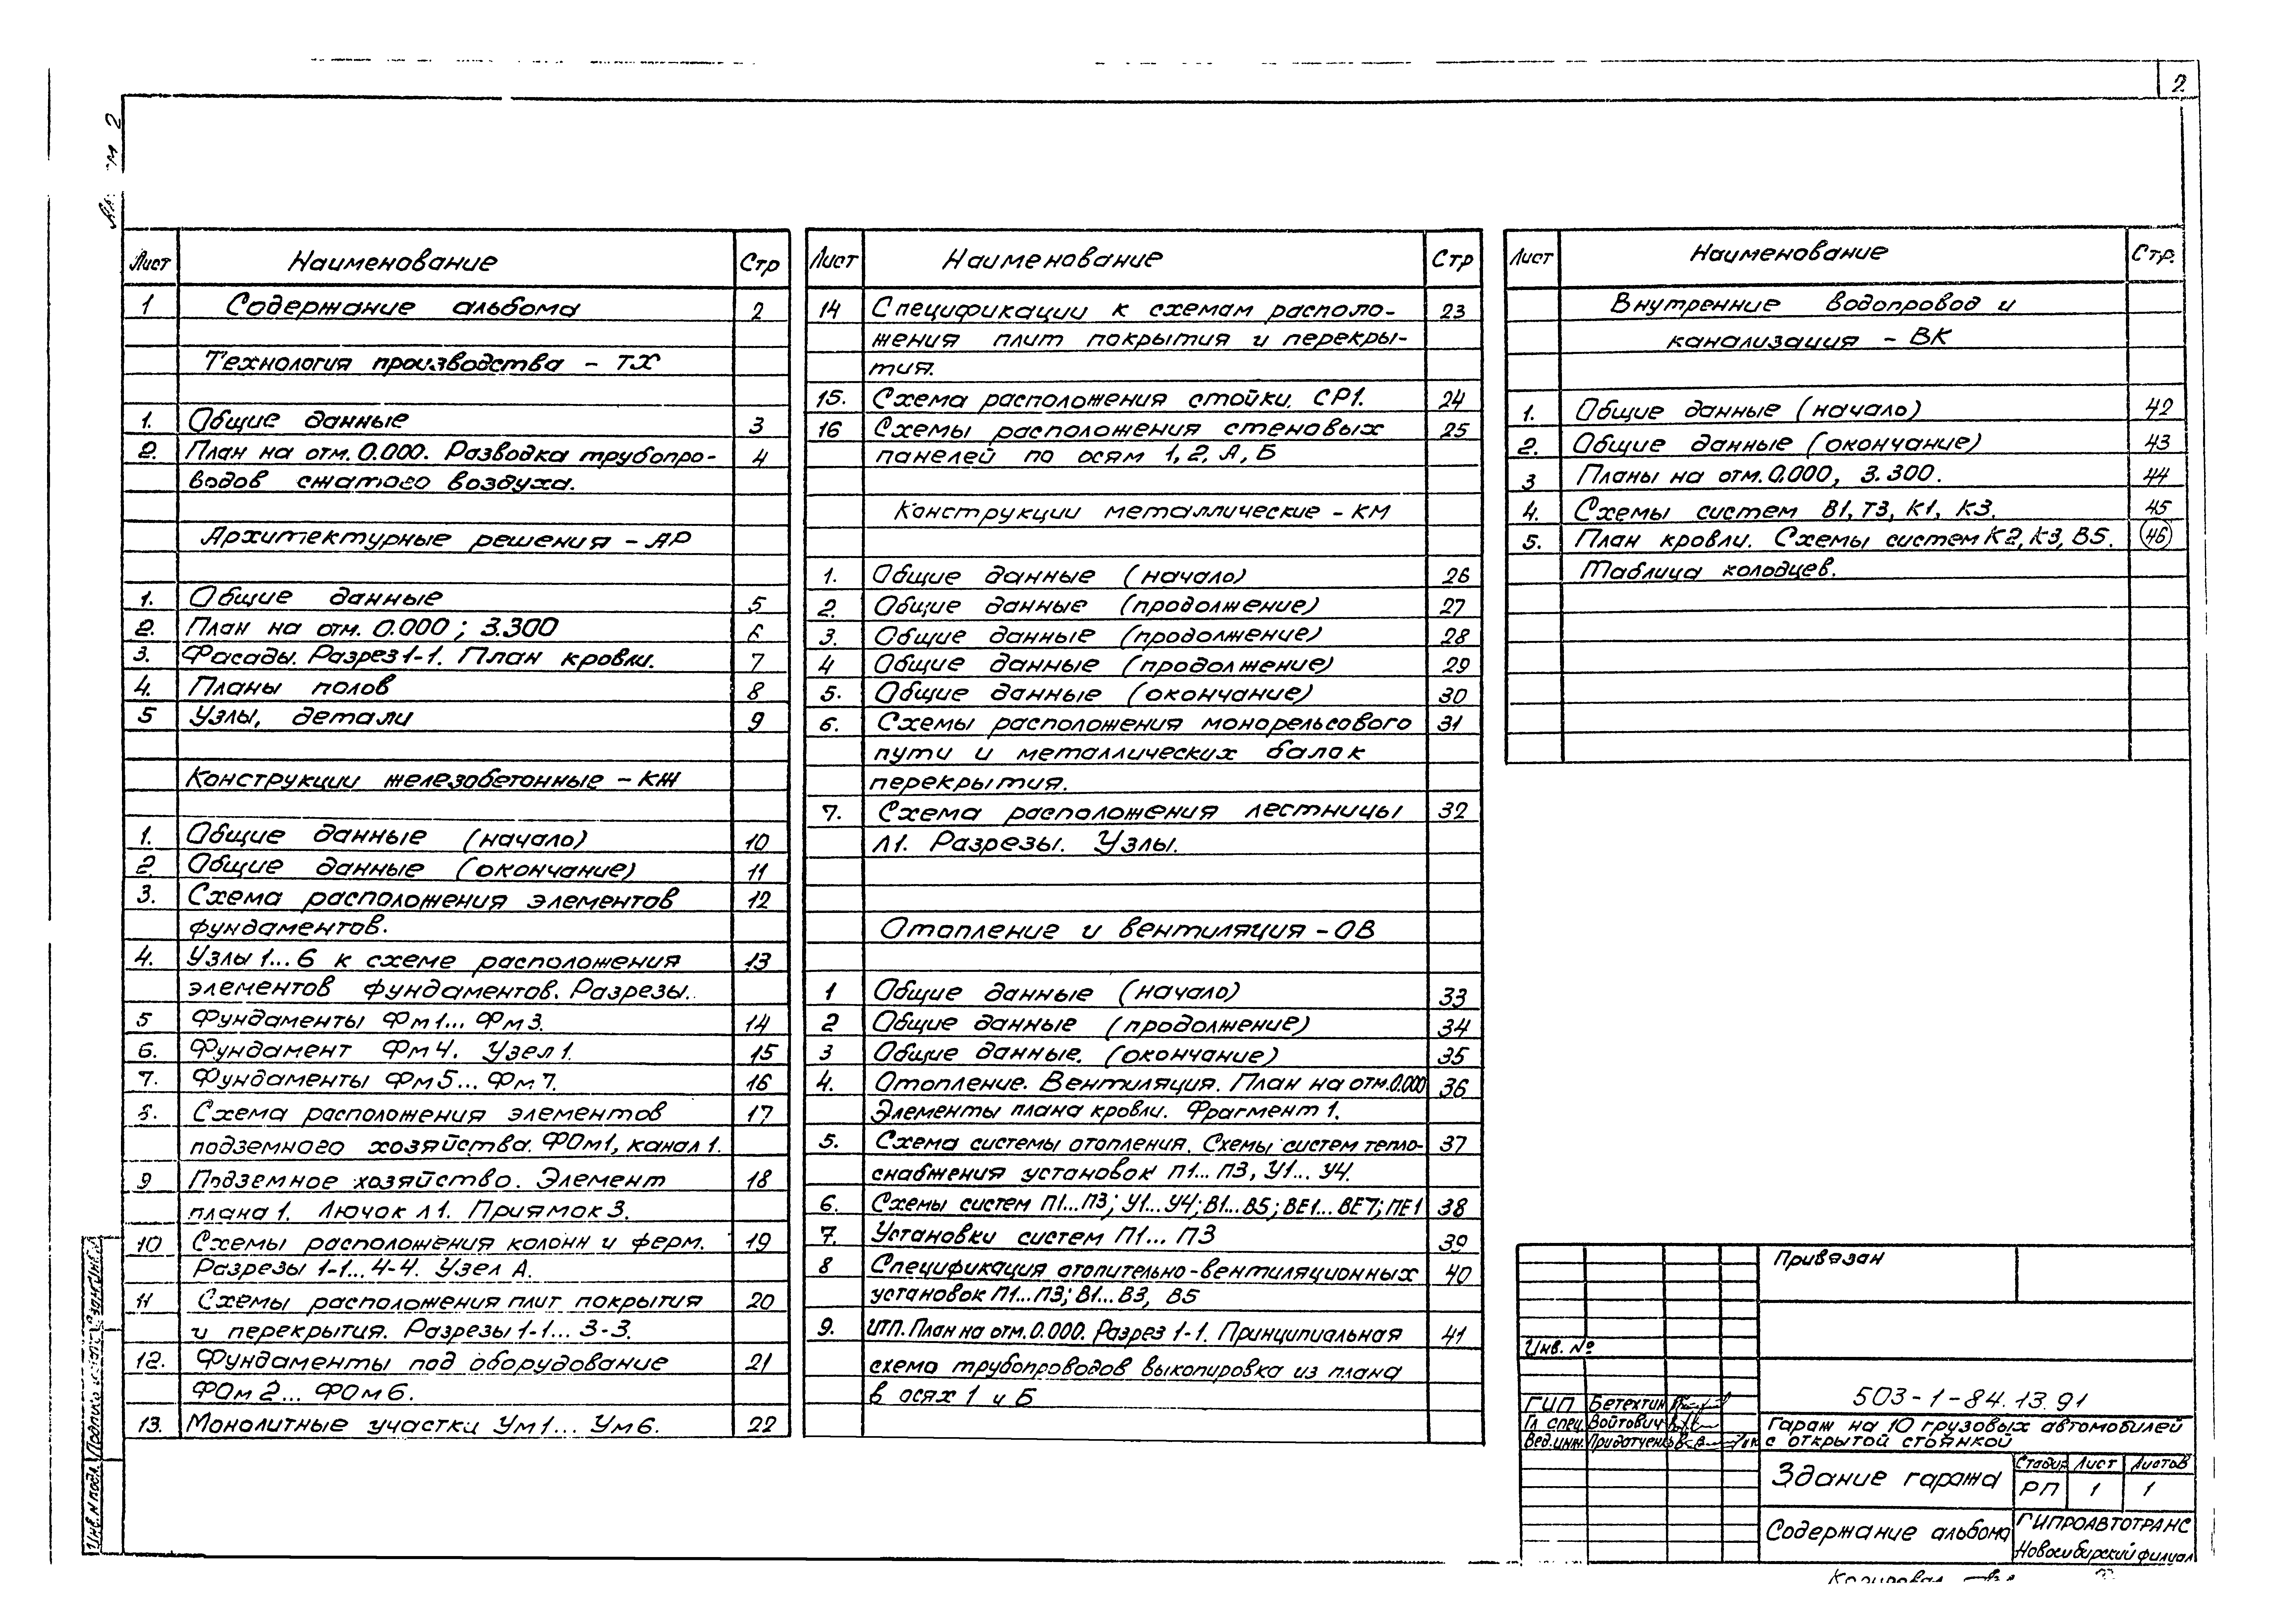 2
2
Лист Наименование Стр
1 Содержание альбома 2
Технология производства - ТХ
1. Общие данные 3
2. План на отм. 0.000. Разводка трубопро- 4
водов сжатого воздуха.
Архитектурные решения - АР
1. Общие данные 5
2. План на отм. 0.000; 3.300 6
3. Фасады. Разрез 1-1. План кровли. 7
4. Планы полов 8
5 Узлы, детали 9
Конструкции железобетонные - КЖ
1. Общие данные (начало) 10
2. Общие данные (окончание) 11
3. Схема расположения элементов 12
фундаментов.
4. Узлы 1...6 к схеме расположения 13
элементов фундаментов. Разрезы.
5 Фундаменты Фм1... Фм3. 14
6. Фундамент Фм4. Узел 1. 15
7. Фундаменты Фм5... Фм7. 16
8. Схема расположения элементов 17
подземного хозяйства. ФОм1, канал 1.
9 Подземное хозяйство. Элемент 18
плана 1. Лючок Л1. Приямок 3.
10 Схемы расположения колонн и ферм. 19
Разрезы 1-1...4-4. Узел А.
11 Схемы расположения плит покрытия 20
и перекрытия. Разрезы 1-1... 3-3.
12. Фундаменты под оборудование 21
ФОм2... ФОм6.
13. Монолитные участки Ум1... Ум6. 22
Лист Наименование Стр
14 Спецификации к схемам располо- 23
жения плит покрытия и перекры-
тия.
15. Схема расположения стойки. СР1. 24
16 Схемы расположения стеновых 25
панелей по осям 1, 2, А, Б
Конструкции металлические - КМ
1. Общие данные (начало) 26
2. Общие данные (продолжение) 27
3. Общие данные (продолжение) 28
4 Общие данные (продолжение) 29
5. Общие данные (окончание) 30
6. Схемы расположения монорельсового 31
пути и металлических балок
перекрытия.
7. Схема расположения лестницы 32
Л1. Разрезы. Узлы.
Отопление и вентиляция - ОВ
1 Общие данные (начало) 33
2 Общие данные (продолжение) 34
3 Общие данные. (окончание) 35
4. Отопление. Вентиляция. План на отм. 0.000 36
Элементы плана кровли. Фрагмент 1.
5. Схема системы отопления. Схемы систем тепло- 37
снабжения установок П1... П3, У1... У4.
6. Схемы систем П1...П3; У1...У4; В1...В5; ВЕ1... ВЕ7; ПЕ1 38
7. Установки систем П1... П3 39
8 Спецификация отопительно-вентиляционных 40
установок П1...П3; В1...В3, В5
9. ИТП. План на отм. 0.000. Разрез 1-1. Принципиальная 41
схема трубопроводов выкопировка из плана
в осях 1 и Б
Лист Наименование Стр.
Внутренние водопровод и
канализация - ВК
1. Общие данные (начало) 42
2. Общие данные (окончание) 43
3 Планы на отм. 0.000, 3.300. 44
4. Схемы систем В1, Т3, К1, К3. 45
5. План кровли. Схемы систем К2, К3, В5. 46
Таблица колодцев.
Привязан
Инв. №
503-1-84.13.91
ГИП Бетехтин
Гл. спец. Войтович
Вед. инж. Придатченко
Гараж на 10 грузовых автомобилей
с открытой стоянкой
Здание гаража
Стадия Лист Листов
РП 1 1
Содержание альбома
ГИПРОАВТОТРАНС
Новосибирский филиал
Инв. N подл. Подпись и дата Взам. инв. N
Копировал